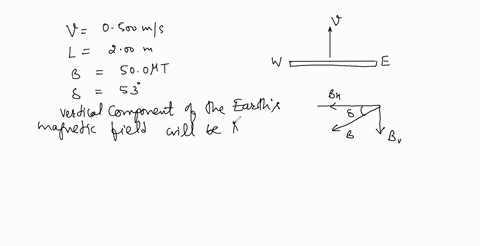 V = 0.500 m/s
L = 2.00 m
B = 50.0 MT
δ = 53°
vertical component of the Earth's
magnetic field will be
V
W E
BH
δ
B
Bv